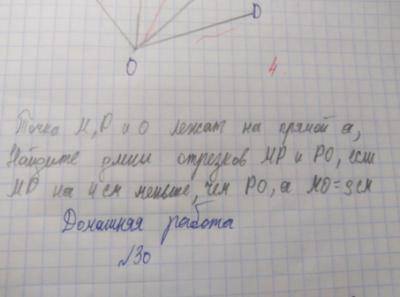 D
O
4
Точка М, Р и О лежат на прямой а,
Найдите длины отрезков МР и РО, если
МР на 4 см меньше, чем РО, а МО=9см
Домашняя работа
№30